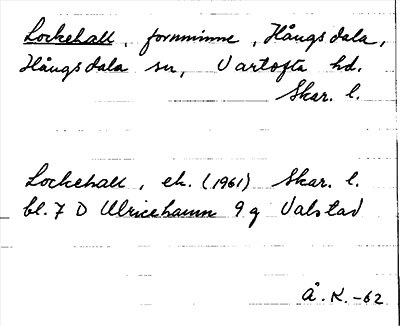 Lockehall, fornminne, Hångsdala,
Hångsdala sn, Vartofta hd.
Skar. l.
Lockehall, ek. (1961) Skar. l.
bl. 7 D Ulricehamn 9 g Valstad
Å. K. -62